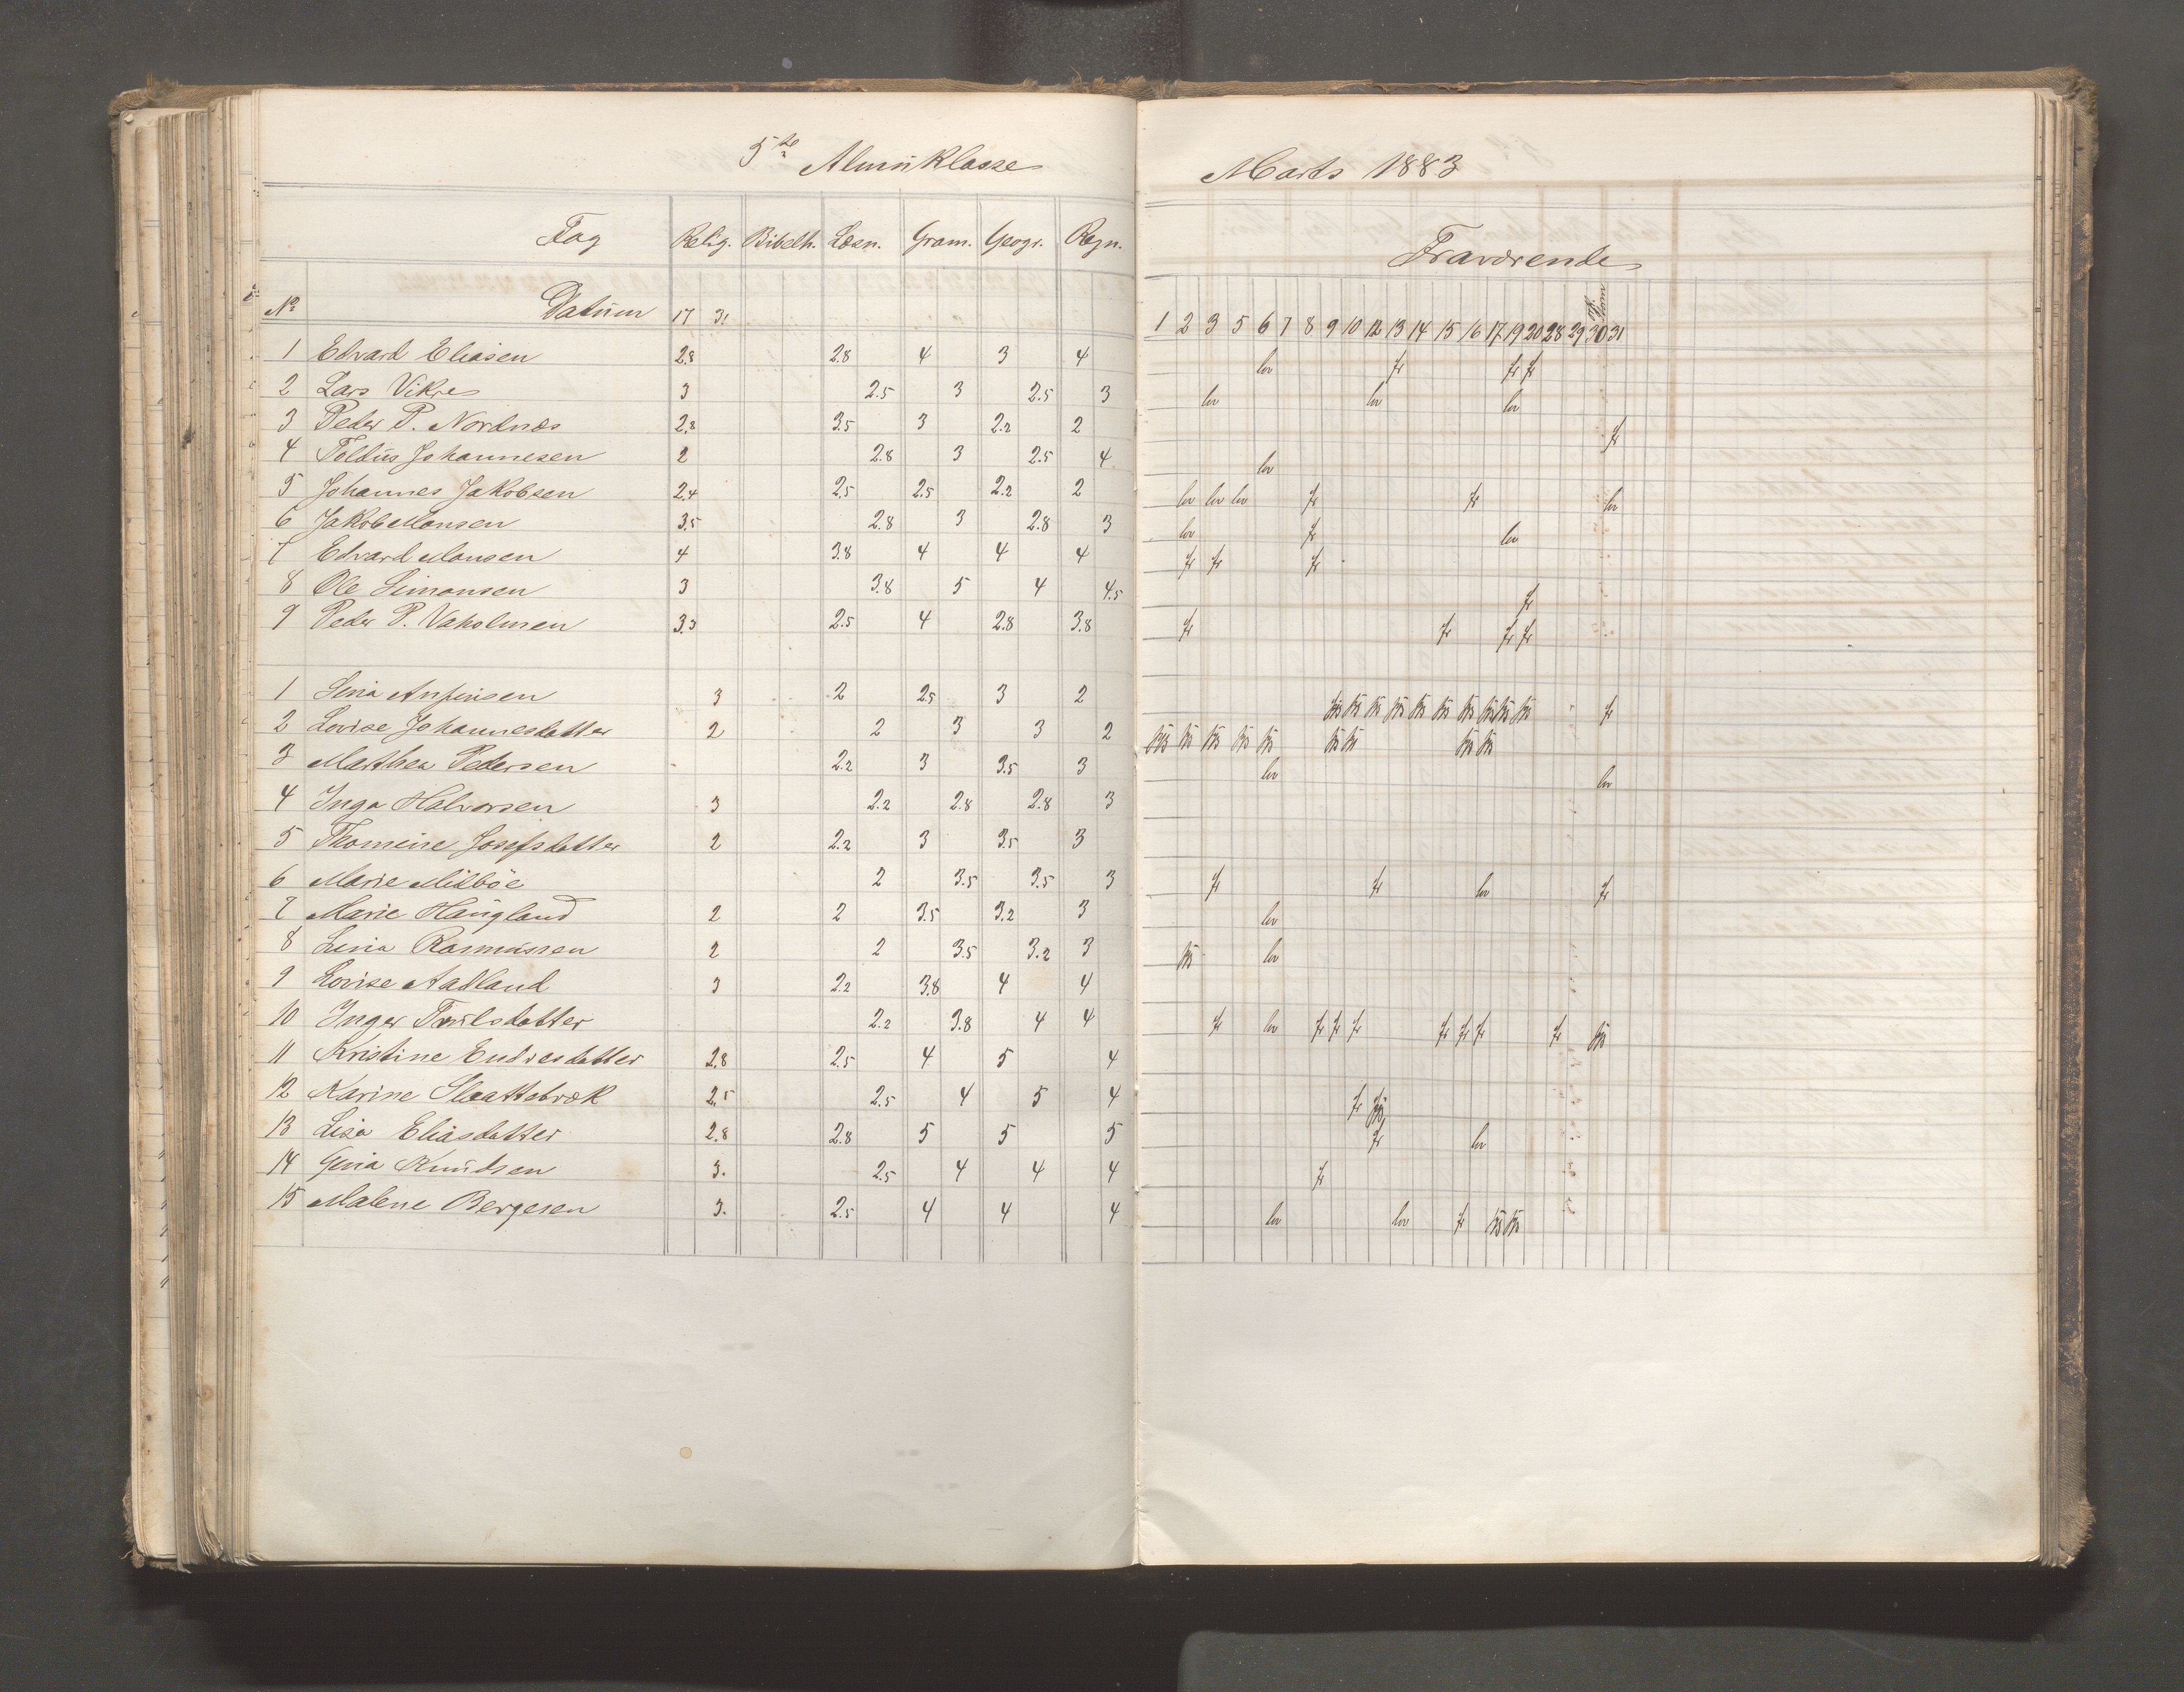 5te Almuklasse
Fag Relig. Bibelh. Læsn. Gram. Geogr. Regn.
No Datum 17 31
1 Edvard Eliasen 2.8 2.8 4 3 4
2 Lars Vikre 3 2.5 3 2.5 3
3 Peder P. Nordnæs 2.8 3.5 3 2.2 2
4 Toldus Johannesen 2 2.8 3 2.5 4
5 Johannes Jakobsen 2.4 2.5 2.5 2.2 2
6 Jakob Monsen 3.5 2.8 3 2.8 3
7 Edvard Monsen 4 3.8 4 4 4
8 Ole Simonsen 3 3.8 5 4 4.5
9 Peder P. Vaholmen 3.3 2.5 4 2.8 3.8
1 Anfinsen 3 2 2.5 3 2
2 Lovise Johannesdatter 2 2 3 3 2
3 Marthea Pedersen 2.2 3 3.5 3
4 Inga Halvorsen 3 2.2 2.8 2.8 3
5 Thomine Josefsdatter 2 2.2 3 3.5 3
6 Marie Midbøe 2 3.5 3.5 3
7 Marie Haugland 2 2 3.5 3.2 3
8 Lina Rasmussen 2 2 3.5 3.2 3
9 Lovise Aadland 3 2.2 3.8 4 4
10 Inger 2.2 3.8 4 4
11 Kristine Endresdatter 2.8 2.5 4 5 4
12 Karine Slaattebræk 2.5 2.5 4 5 4
13 Lisa Eliasdatter 2.8 2.8 5 5 5
14 Gina Knudsen 3. 2.5 4 4 4
15 Malene Bergesen 3. 2.5 4 4 4
Marts 1883
Fraværende
1 2 3 5 6 7 8 9 10 12 13 14 15 16 17 19 20 28 29 30 31
lov fr fr fr
lov lov lov
fr
lov
lov lov lov fr fr lov
lov fr lov
fr fr fr
fr
fr fr fr fr
fr
lov lov
fr fr lov fr
lov
lov
fr lov fr fr fr fr fr fr fr
fr
fr lov
fr
lov lov fr